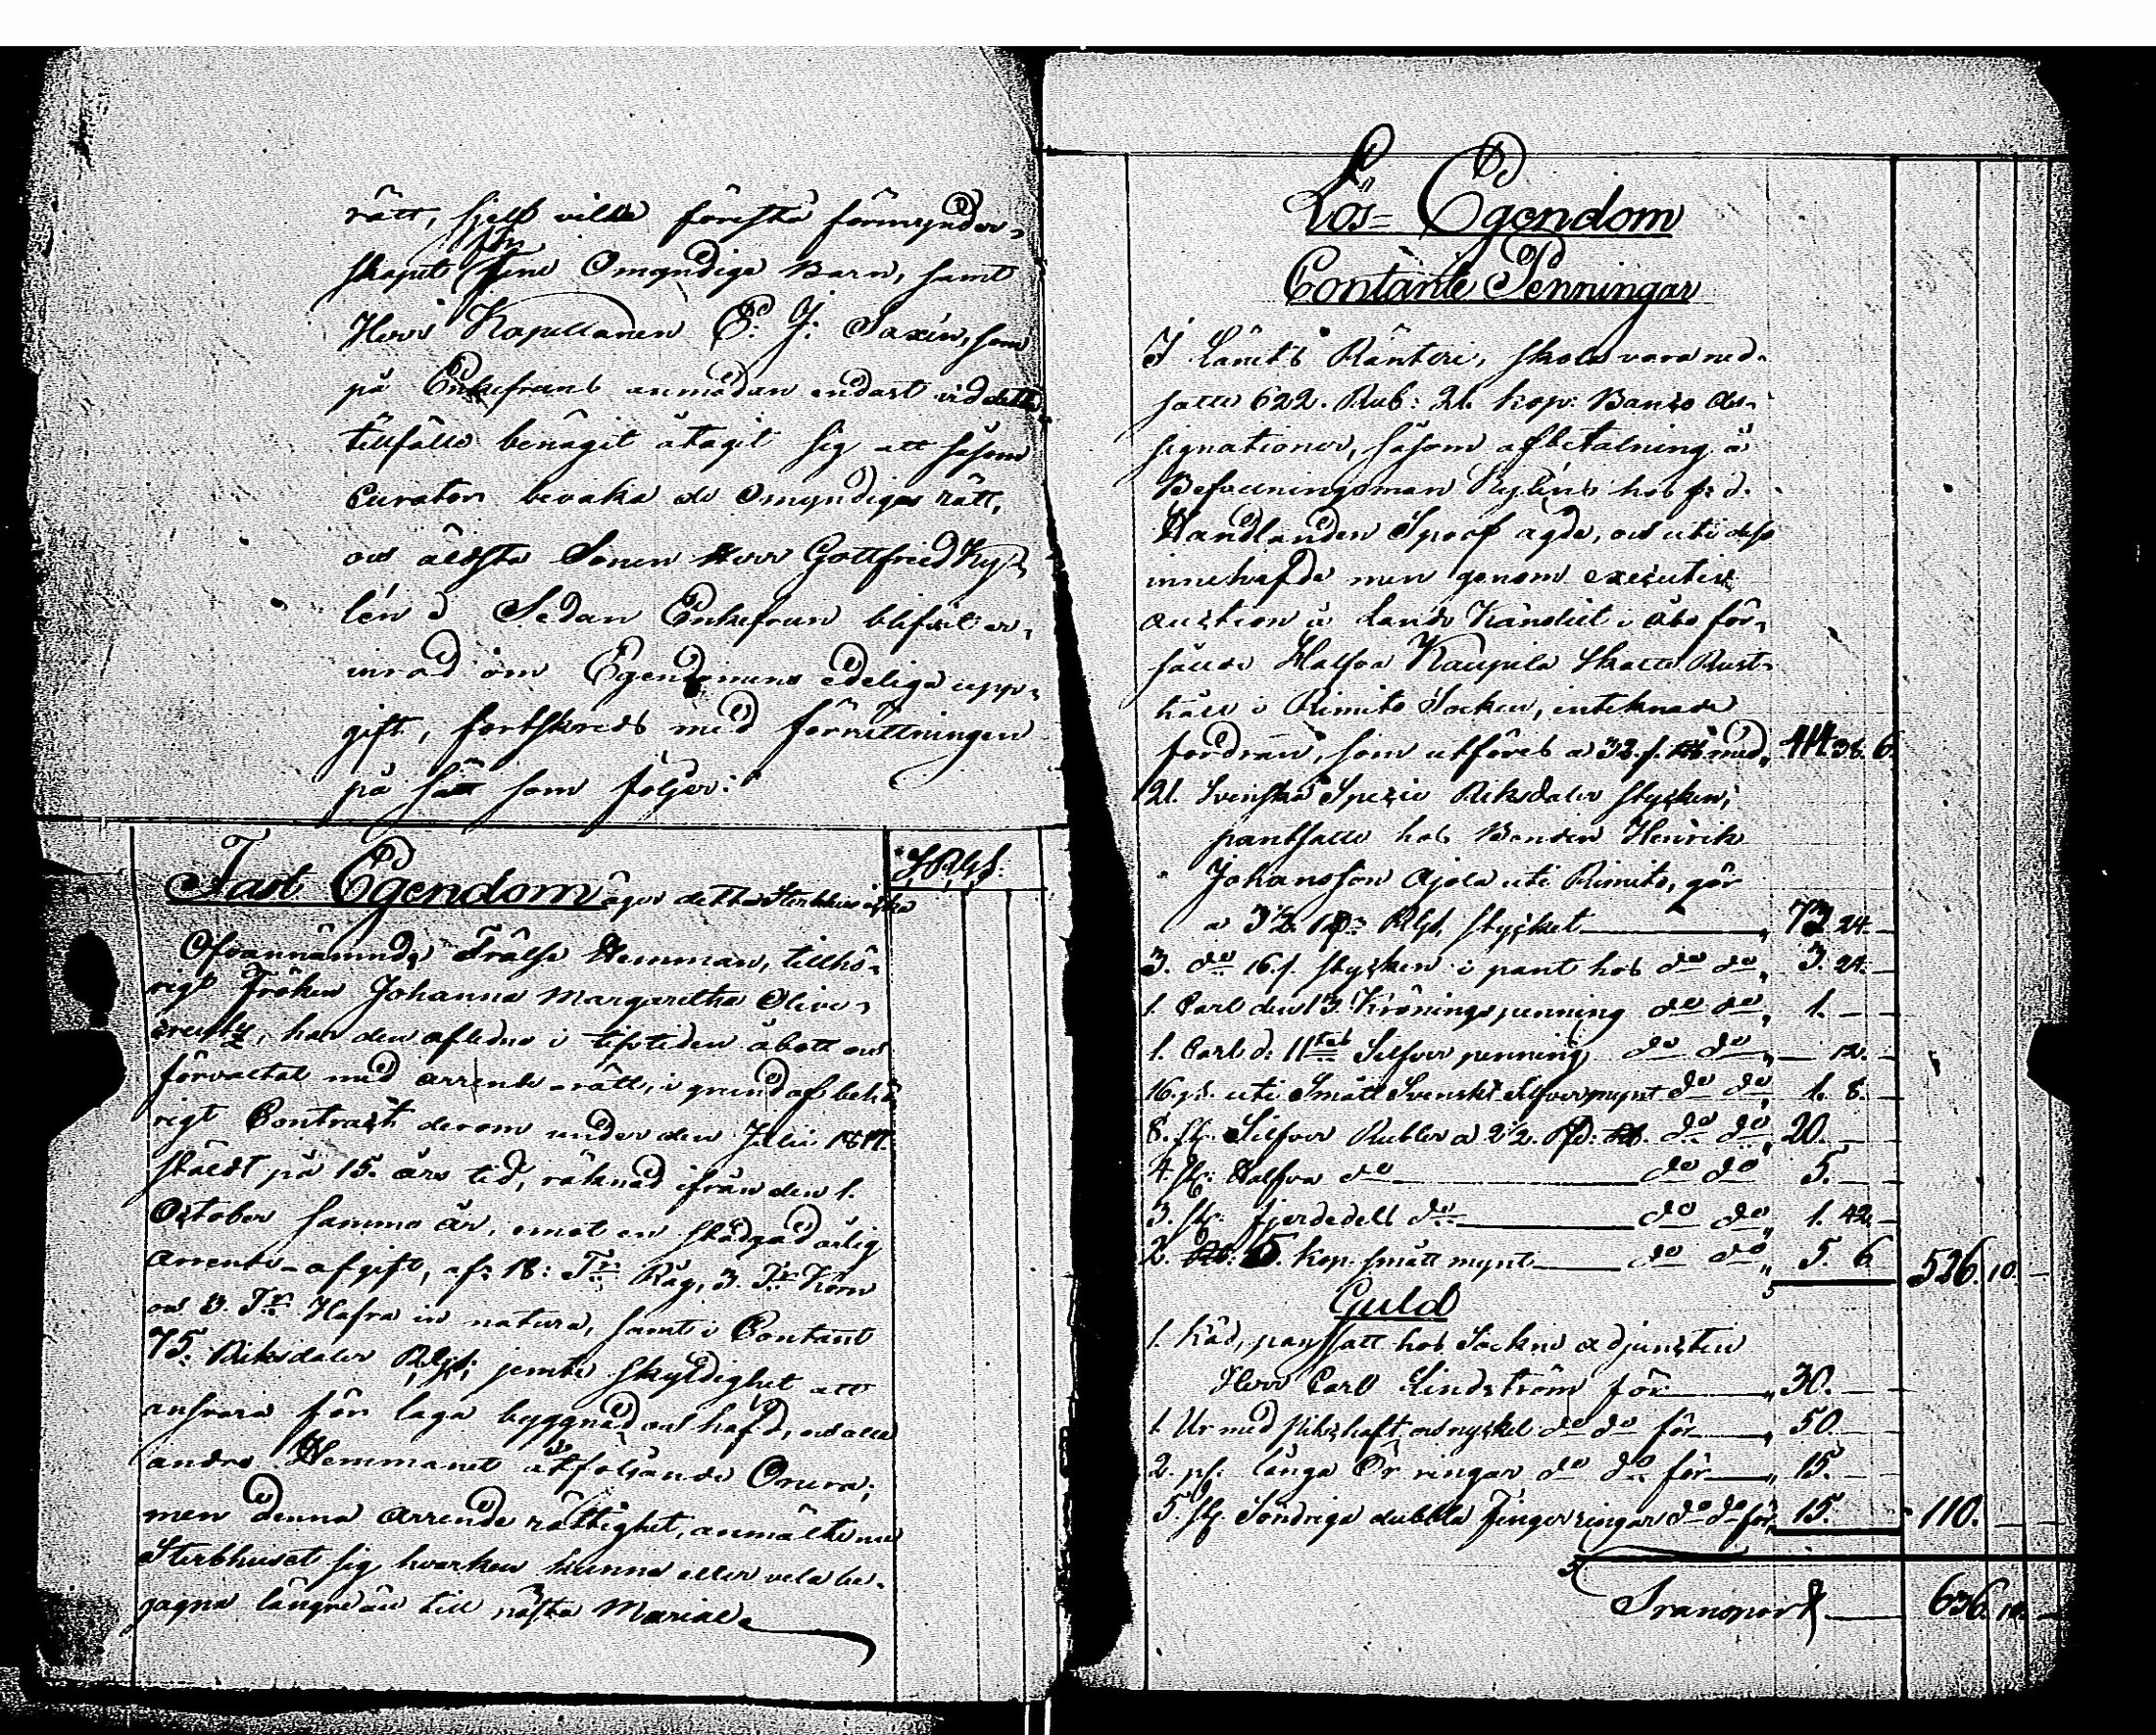 rätt, sjelf ville förestå förmynder-
skapet för sine Omyndige Barn, samt
Herr Kapellanen E: J: Saxén, som
på Enkefruns anmodan endast vid detta
tillfälle benägit åtagit sig att såsom
Curator bevaka de Omyndigas rätt,
och äldsta Sonen Herr Gottfried Ky-
lén. Sedan Enkefrun blifvit er-
inrad om Egendomens edeliga upp-
gift, fortskreds med förrättningen
på sätt som följer:
Fast Egendom äger detta Sterbhus icke
Ofvannämnde Frälse Hemman, tillhö-
rigt Fröken Johanna Margaretha Olive-
creutz, har den aflidne i lifstiden åbott och
förvaltat med arrende-rätt, i grund af behö-
rigt Contract derom under den Julii 1817.
skedt på 15. års tid, räknad ifrån den 1.
October samma år, emot en stadgad årlig
Arrende-afgift, af 18: Tr Råg, 3. Tr Korn
och 3. Tr Hafra in natura, samt i Contant
75. Riksdaler Rgs; jemte skyldighet att
ansvara för laga byggnad och häfd, och alla
andra Hemmanet åtföljande Onera;
men denna Arrende rättighet, anmälte nu
Sterbhuset sig hvarken kunna eller vela be-
gagna längre än till nästa Mariae
Lös-Egendom
Contante Penningar
I Länets Ränteri, skola vara ned-
satte 622. Rub: 21. kop: Banco As-
signationer, såsom afbetalning å
Befallningsman Kyléns hos f: d.
Handlanden Spoof ägde, och uti dess
innehafde men genom executiv
auction å Lands Kansliet i Åbo för-
sålde Halfva Kaupila Skatte Rust-
håll i Rimito Socken, intecknade
fordran, som utföres a 32. s. med, 414 38. 6.
21. Svenska Specie Riksdaler stycken,
pantsatte hos Bonden Henrik
Johansson Ajola uti Rimito, gör
a 3 1/2 Rgs stycket 73. 24. -
3. do 16. s. stycken i pant hos do do, 3. 24. -
1. Carl den 13. Kröningspenning do do, 1. - -
1. Carl d: 11tes Silfver penning do do, - 12. -
16. uti Smått Svenskt Silfvermynt do do, 1. 8. -
8. st. Silfver Rubler a 2 1/2 do do, 20. - -
4. st: Halfva do do do 5. - -
3. st: fjerdedels do do do 1. 42. -
2. 5. kop. smått mynt do do 5. 6 526. 10. -
Guld
1. Käd, pantsatt hos Sockne adjuncten
Herr Carl Lindström för 30. - -
1. Ur med och nyckel do do för 50. - -
2. långa Örringar do do för 15. - -
5. st. Söndriga dubbla Fingerringar do do för 15. - 110. - -
Transport 636. 10. -